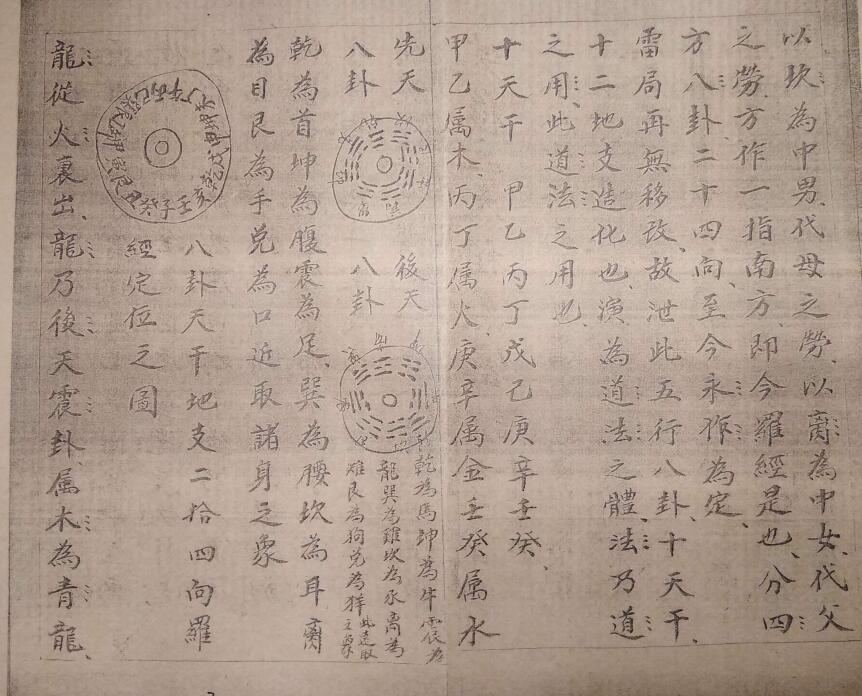 以坎為中男、代母之勞、以离為中女、代父
之勞、方作一指南方、即今羅經是也、分四
方八卦、二十四向、至今永作為定、
雷局再無移改、故泄此五行八卦、十天干、
十二地支造化也、演為道法之體、法乃道
之用、此道法之用也、
十天干 甲乙丙丁戊己庚辛壬癸、
甲乙属木、丙丁属火、庚辛属金壬癸属水
先天八卦
後天八卦
乾為馬坤為牛震為
龍巽為雞坎為豕离為
雉艮為狗兌為羊此遠取
乾為首坤為腹震為足、巽為腰坎為耳离
為目艮為手兌為口近取諸身之象
八卦天干地支二拾四向羅
經定位之圖
癸子壬亥乾戌
龍從火裏出、龍乃後天震卦、属木為青龍、